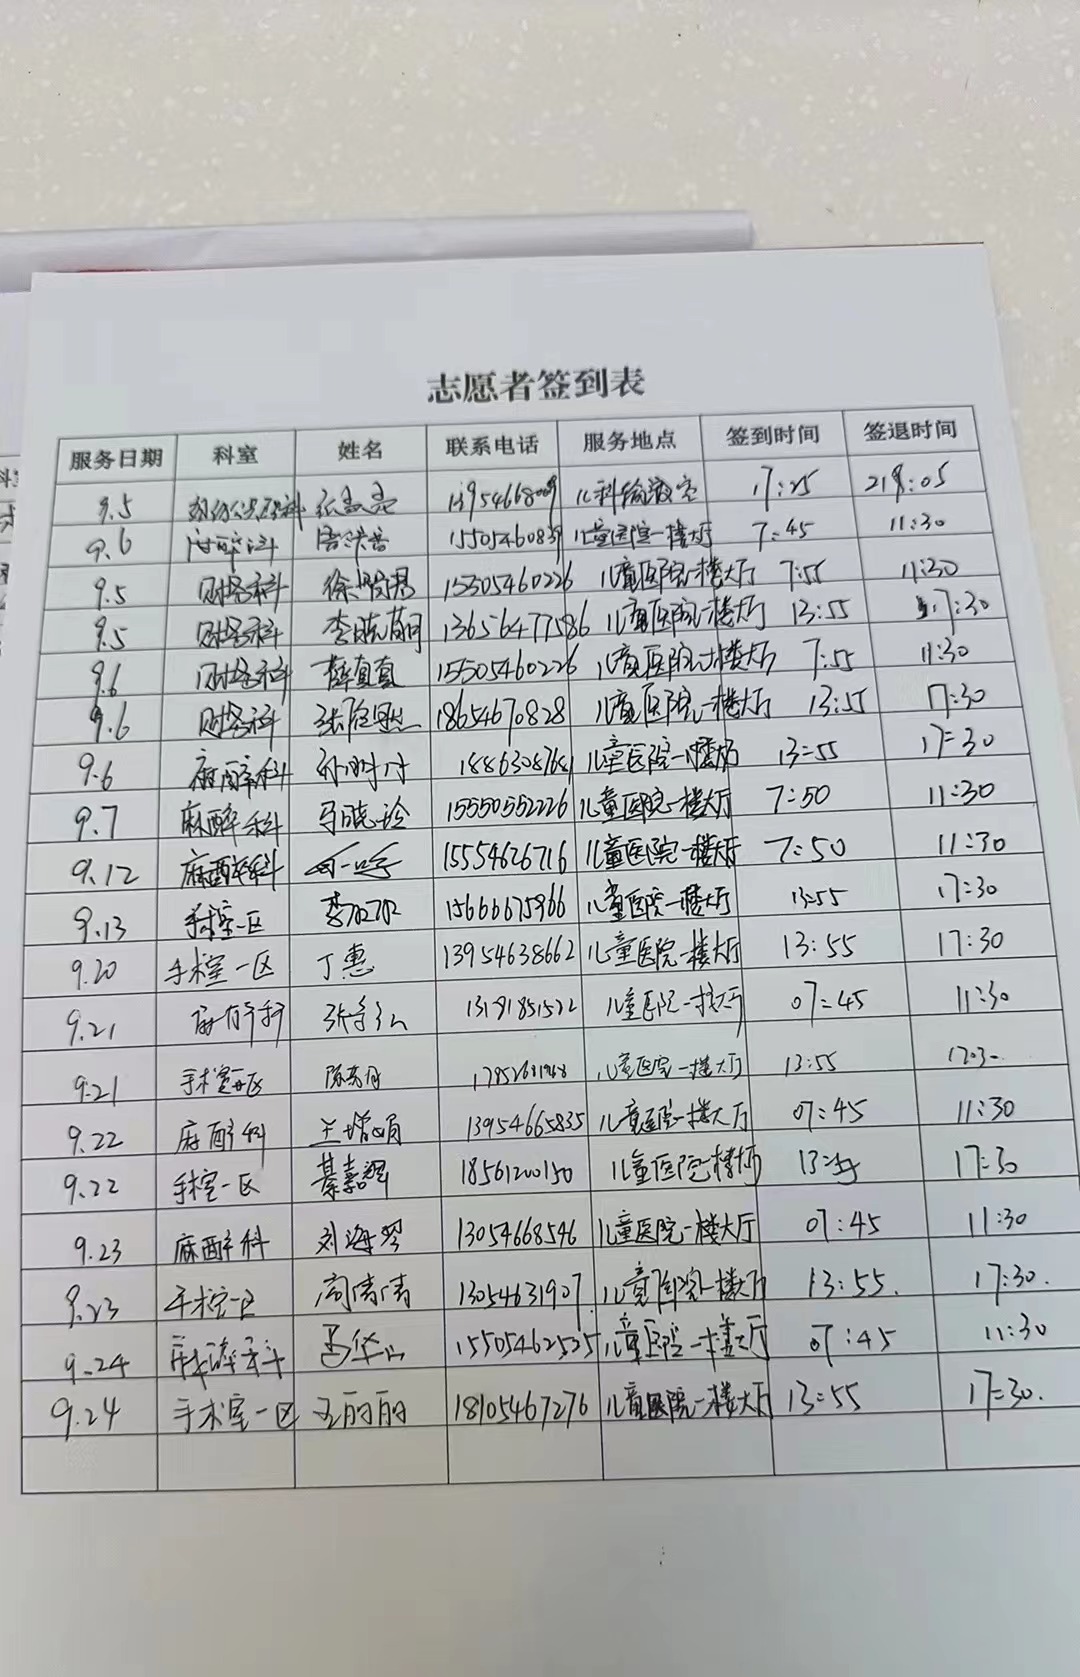 志愿者签到表
服务日期 科室 姓名 联系电话 服务地点 签到时间 签退时间
9.5 13954668009 儿科输液室 17:25 21:05
9.6 麻醉科 15505460839 儿童医院一楼大厅 7:45 11:30
9.5 财务科 15305460226 儿童医院一楼大厅 7:55 11:30
9.5 财务科 李晓萌 13656477586 儿童医院一楼大厅 13:55 17:30
9.6 财务科 薛真真 15505460226 儿童医院一楼大厅 7:55 11:30
9.6 财务科 18654670828 儿童医院一楼大厅 13:55 17:30
9.6 麻醉科 18863087681 儿童医院一楼大厅 13:55 17:30
9.7 麻醉科 马晓玲 15550552226 儿童医院一楼大厅 7:50 11:30
9.12 麻醉科 15554626716 儿童医院一楼大厅 7:50 11:30
9.13 手术室一区 15666675966 儿童医院一楼大厅 13:55 17:30
9.20 手术室一区 丁惠 13954638662 儿童医院一楼大厅 13:55 17:30
9.21 麻醉科 13181851522 儿童医院一楼大厅 07:45 11:30
9.21 手术室一区 儿童医院一楼大厅 13:55 17:30
9.22 麻醉科 王增娟 13954665835 儿童医院一楼大厅 07:45 11:30
9.22 手术室一区 綦嘉 18561200150 儿童医院一楼大厅 13:55 17:30
9.23 麻醉科 刘海琴 13054668546 儿童医院一楼大厅 07:45 11:30
9.23 手术室一区 高清清 13054631907 儿童医院一楼大厅 13:55. 17:30.
9.24 麻醉科 15505462525 儿童医院一楼大厅 07:45 11:30
9.24 手术室一区 王丽丽 18105467276 儿童医院一楼大厅 13:55 17:30.